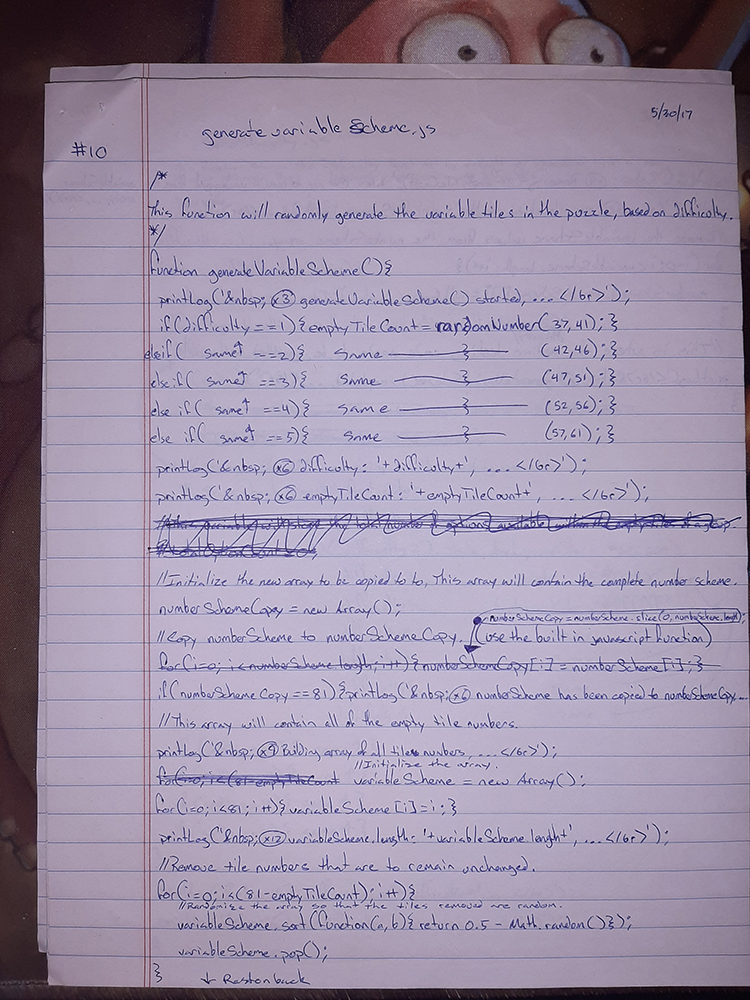 5/30/17
generate variable Scheme.js
#10
/*
This function will randomly generate the variable tiles in the puzzle, based on difficulty.
*/
function generateVariableScheme(){
printLog('&nbsp; x3 generateVariableScheme() started, ... </br>');
if(difficulty==1){emptyTileCount=randomNumber(37,41);}
elseif( same↑ ==2){ same ——}—— (42,46);}
elseif( same↑ ==3){ same ——}—— (47,51);}
else if( same↑ ==4){ same ——}—— (52,56);}
else if( same↑ ==5){ same ——}—— (57,61);}
printLog('&nbsp; x6 difficulty: '+difficulty+', ... </br>');
printLog('&nbsp; x6 emptyTileCount: '+emptyTileCount+', ... </br>');
//Initialize the new array to be copied to to, This array will contain the complete number scheme.
numberSchemeCopy = new Array();
numberSchemeCopy = numberScheme.slice(0, numberScheme.length);
//Copy numberScheme to numberSchemeCopy. (use the built in javascript function)
for(i=0; i<numberScheme.length; i++){numberSchemeCopy[i] = numberScheme[i];}
if(numberSchemeCopy==81){printLog('&nbsp; x6 numberScheme has been copied to numberSchemeCopy...
//This array will contain all of the empty tile numbers.
printLog('&nbsp; x9 Building array of all tiles numbers, ... </br>');
//Initialize the array.
for(i=0; i<(81-emptyTileCount variableScheme = new Array();
for(i=0; i<81; i++){variableScheme[i]=i;}
printLog('&nbsp; x12 variableScheme.length: '+variableScheme.length+', ... </br>');
//Remove tile numbers that are to remain unchanged.
for(i=0; i<(81-emptyTileCount); i++){
//Randomize the array so that the tiles removed are random.
variableScheme.sort(function(a,b){return 0.5 - Math.random()});
variableScheme.pop();
}
↓ Rest on back